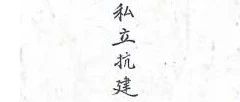 私立抗建